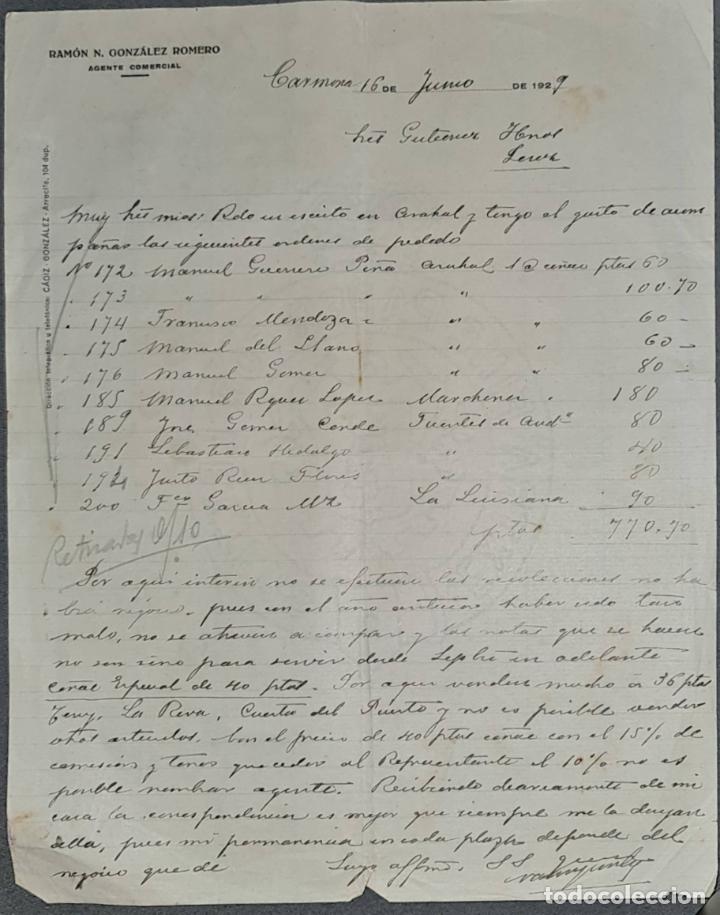 RAMÓN N. GONZÁLEZ ROMERO
AGENTE COMERCIAL
Carmona 16 DE Junio DE 1929
Sres Gutierrez Hnos
Jerez
Dirección telegráfica y telefónica: CÁDIZ-GONZÁLEZ-Arrecife, 104 dup.
Muy Sres mios: Rdo su escrito en Arahal y tengo el gusto de acom
pañar las siguientes ordenes de pedido
No 172 Manuel Guerrero Peña Arahal 1 @ coñac ptas 60
" 173 " " " " 100.70
" 174 Francisco Mendoza " " " 60 -
" 175 Manuel del Llano " " 60 -
" 176 Manuel Gomez " " 80 -
" 185 Manuel Rguez Lopez Marchena " 180
" 189 Jose Gomez Conde Fuentes de And.a 80
" 191 Sebastian Hidalgo " 40
" 194 Justo Ruiz Flores " 80
" 200 Fco Garcia Mz La Luisiana 90
ptas 770.70
Retiradas 10
Por aqui interin no se efectuen las recolecciones no ha
brá negocio, pues con el año anterior haber sido tan
malo, no se atreven a comprar y las notas que se hacen
no son sino para servir desde Sepbre en adelante
Coñac Especial de 40 ptas. Por aqui venden mucho a 36 ptas
Terry, La Riva, Cuesta del Puerto y no es posible vender
otros articulos. Con el precio de 40 ptas coñac con el 15% de
comision y tener que ceder al Representante el 10% no es
posible nombrar agente. Recibiendo diariamente de mi
casa la correspondencia es mejor que siempre me la dirijan
allá, pues mi permanencia en cada plaza depende del
negocio que dé Suyo affmo. S S